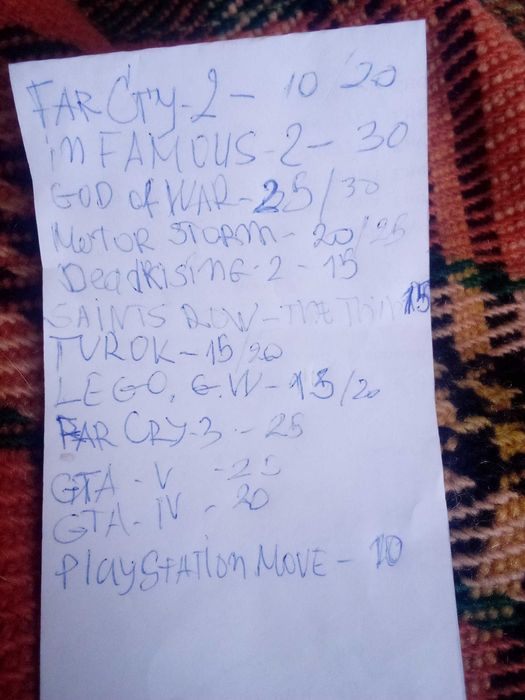 FAR CRY-2 - 10/20
inFAMOUS-2- 30
GOD of WAR-25/30
MOTOR STORM-20/25
DeadRising-2-15
SAINTS ROW-The Third 15
TUROK-15/20
LEGO. G.W-15/20
FAR CRY-3 - 25
GTA-V -25
GTA-IV - 20
PlayStation MOVE - 10